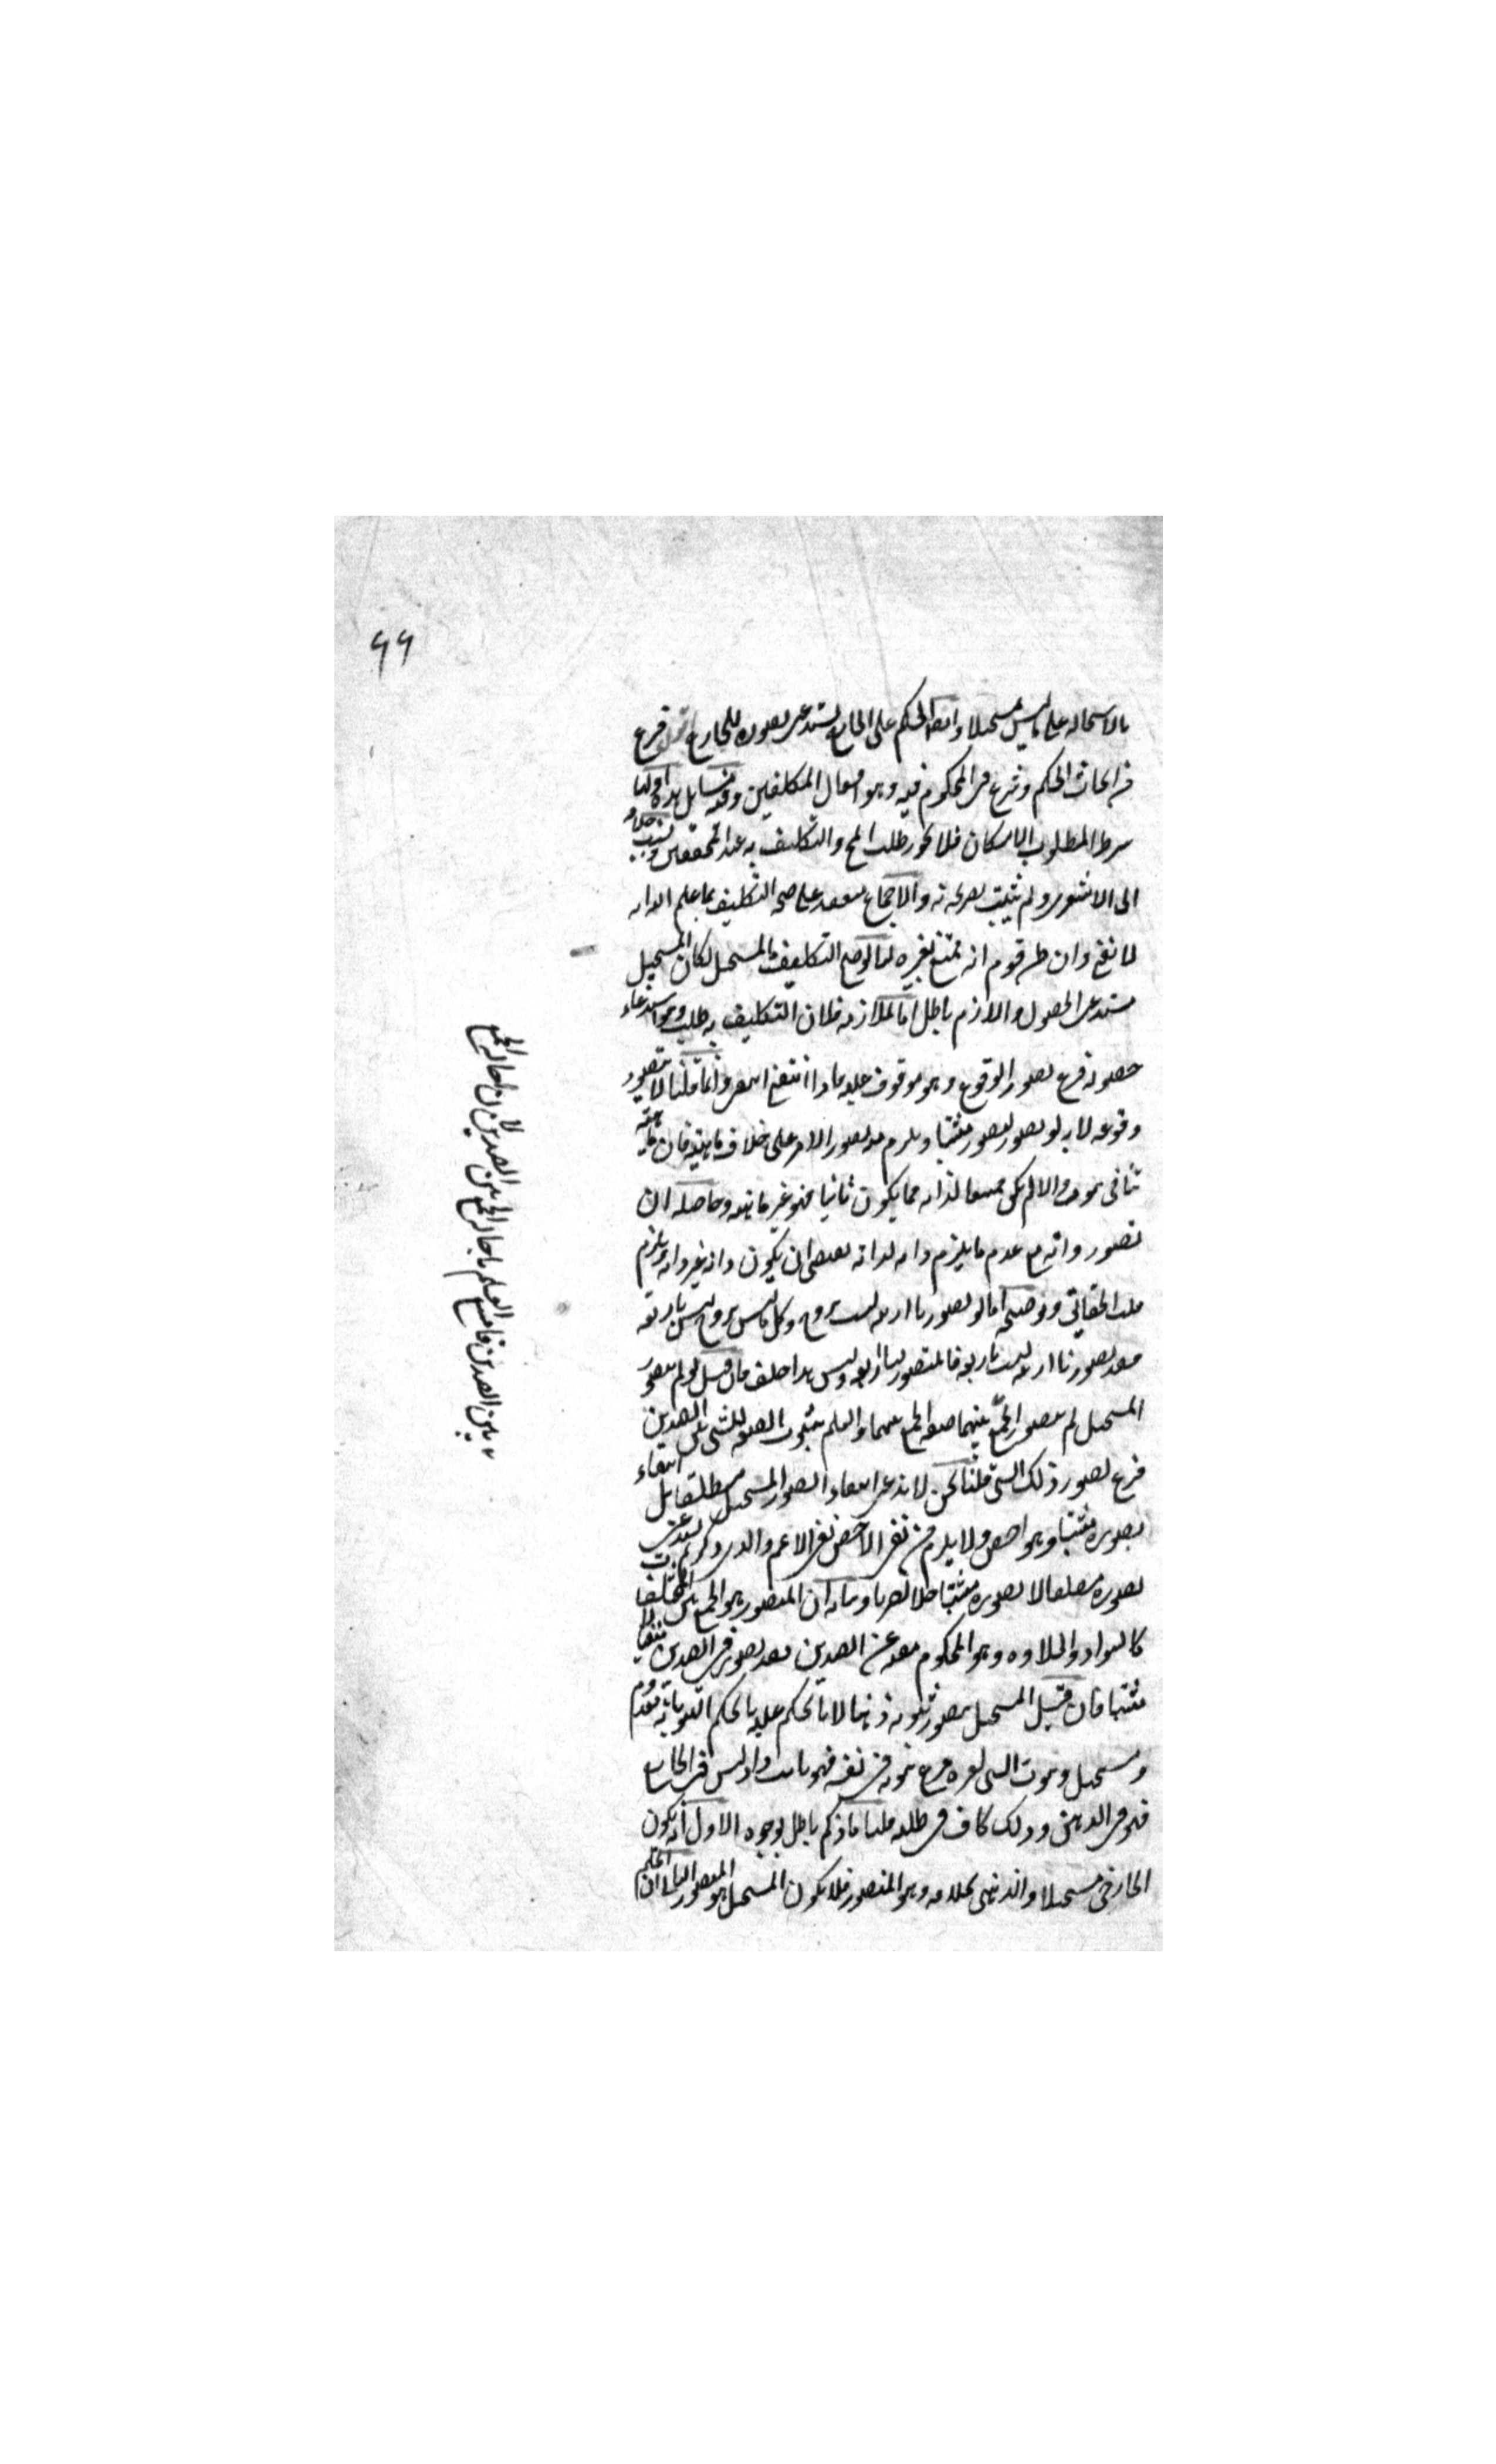 ٦٦
بالاستحاله على ما ليس مستحيلا وايضا الحكم على الخارج يستدعى تصوره للخارج اقول فرغ
من ابحاث الحكم وشرع فى المحكوم فيه وهو افعال المكلفين وفيه مسايل هذه اولها
شرط المطلوب الامكان فلا يجوز طلب المح والتكليف به عند المحققين ونسب خلافه
الى الاشعرى ولم يثبت تصريحه به والاجماع منعقد على صحه التكليف بما علم الله انه
لا يقع وان ظن قوم انه ممتنع لغيره لنا لو صح التكليف بالمستحيل لكان المستحيل
مستدعى الحصول واللازم باطل اما الملازمه فلان التكليف به طلب وهو استدعاء
حصوله فرع تصور الوقوع وهو موقوف عليه فاذا انتفى وانما قلنا لا يتصور
وقوعه لانه لو تصور تصور مثبتا ويلزم منه تصور الامر على خلاف ماهيته فان ماهيته
تنافى ثبوته والا لم يكن ممتنعا لذاته فما يكون ثابتا فهو غير ماهيته وحاصله ان
تصور ذاته مع عدم ما يلزم ذاته لذاته يقتضى ان يكون ذاته غير ذاته ويلزم
قلب الحقائق وتوضيحه انا لو تصورنا اربعه ليست بزوج وكل ما ليس بزوج ليس باربعه
فقد تصورنا اربعه ليست باربعه فالمتصور اربعه وليس هذا خلف فان قيل لو لم يتصور
المستحيل لم يتصور الجمع بينهما صفه الجمع بينهما والعلم بثبوت الصفه للشى بين الضدين
فرع تصور ذلك الشى قلنا نحن لا ندعى انتفاء التصور المستحيل مطلقا بل انتفاء
تصوره مثبتا وهو اخص ولا يلزم من نفى الاخص نفى الاعم والذى ذكرتم يستدعى
تصوره مطلقا لا تصوره مثبتا وبيانه ان المتصور هو الجمع بين المختلفات
كالسواد والحلاوه وهو المحكوم بنفيه عن الضدين فقد تصور فى الضدين منفيا لا
مثبتا فان قيل المستحيل يتصور ثبوته ذهنا لانا نحكم عليه بالحكم الثبوتيه بانه معدوم
ومستحيل وثبوت الشى لغيره فرع ثبوته فى نفسه فهو ثابت واذ ليس فى الخارج
فهو فى الذهن وذلك كاف فى طلبه قلنا ما ذكرتم باطل بوجوه الاول انه يكون
الخارجى مستحيلا والذهنى بخلافه وهو المتصور فلا يكون المستحيل هو المتصور الثانى ان الحكم
لا
فامتنع العلم باحاله الجمع بين الضدين لان احاله الجمع
بين الضدين